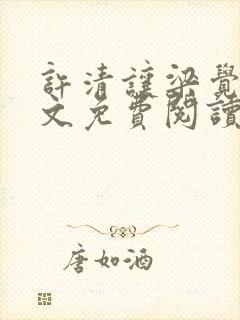 許清讓梁覺
文免費閱讀
唐如酒